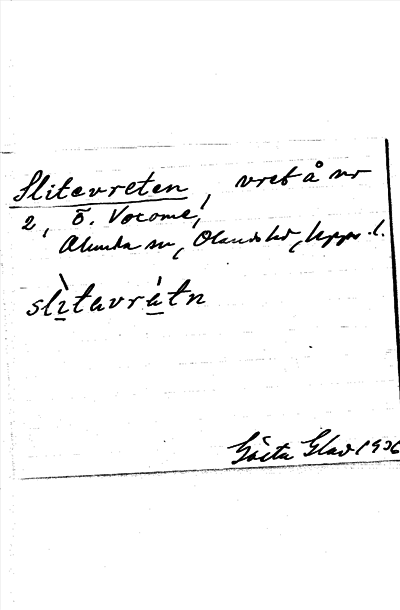 Slitevreten, vret å nr
2, Ö. Vocome,
Alunda sn, Olands hd, Upps. l.
slìtavrétn
Gösta Glad 1936